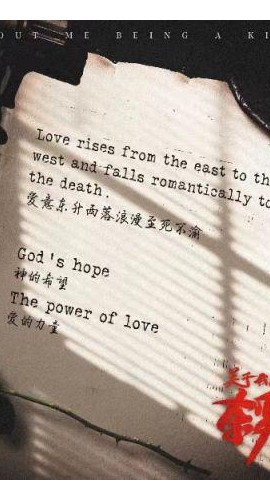 OUT ME BEING A KI
Love rises from the east to th
west and falls romantically to
the death.
爱意东升西落浪漫至死不渝
God's hope
神的希望
The power of love
爱的力量
关于我